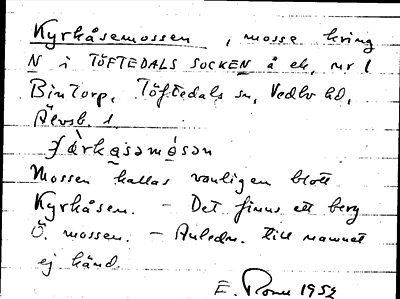 Kyrkåsemossen, mosse kring
N i TÖFTEDALS SOCKEN å ek. nr 1
Bintorp, Töftedals sn, Vedbo hd,
Älvsb. l.
Mossen kallas vanligen blott
Kyrkåsen. – Det finns ett berg
Ö. mossen. – Anledn. till namnet
ej känd.
E. 1952